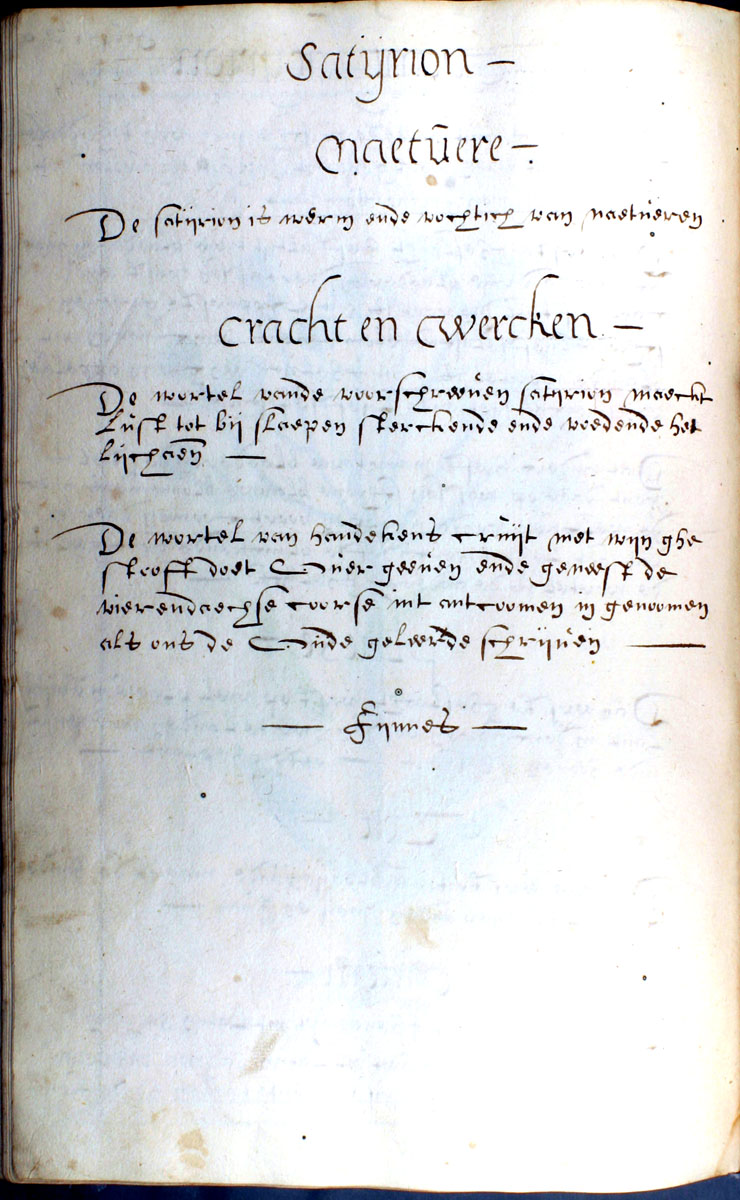 Satijrion —
Naetuere —
De satijrion is werm ende vochtich van naetueren
Cracht en Wercken —
De wortel vande voorschreeuen satijrion maeckt
lust tot bij slaepen sterckende ende voedende het
lijchaem —
De wortel van handekens cruijt met wijn ghe
stooft doet ouer geeuen ende geneest de
vierendaechse coorse int ancoomen in genoomen
als ons de oude geleerde schrijuen —
— Fijnnes —